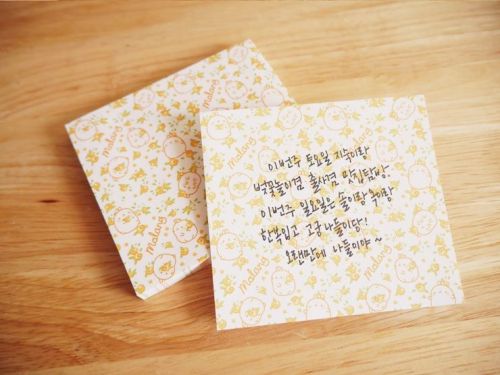 이번주 토요일 지숙이랑
벚꽃놀이겸 출사겸 맛집탐방.
이번주 일요일은 솔이랑 옥이랑
한복입고 고궁나들이당!
오랜만에 나들이야~
Malang
Malang
Malang
Malang
Malang